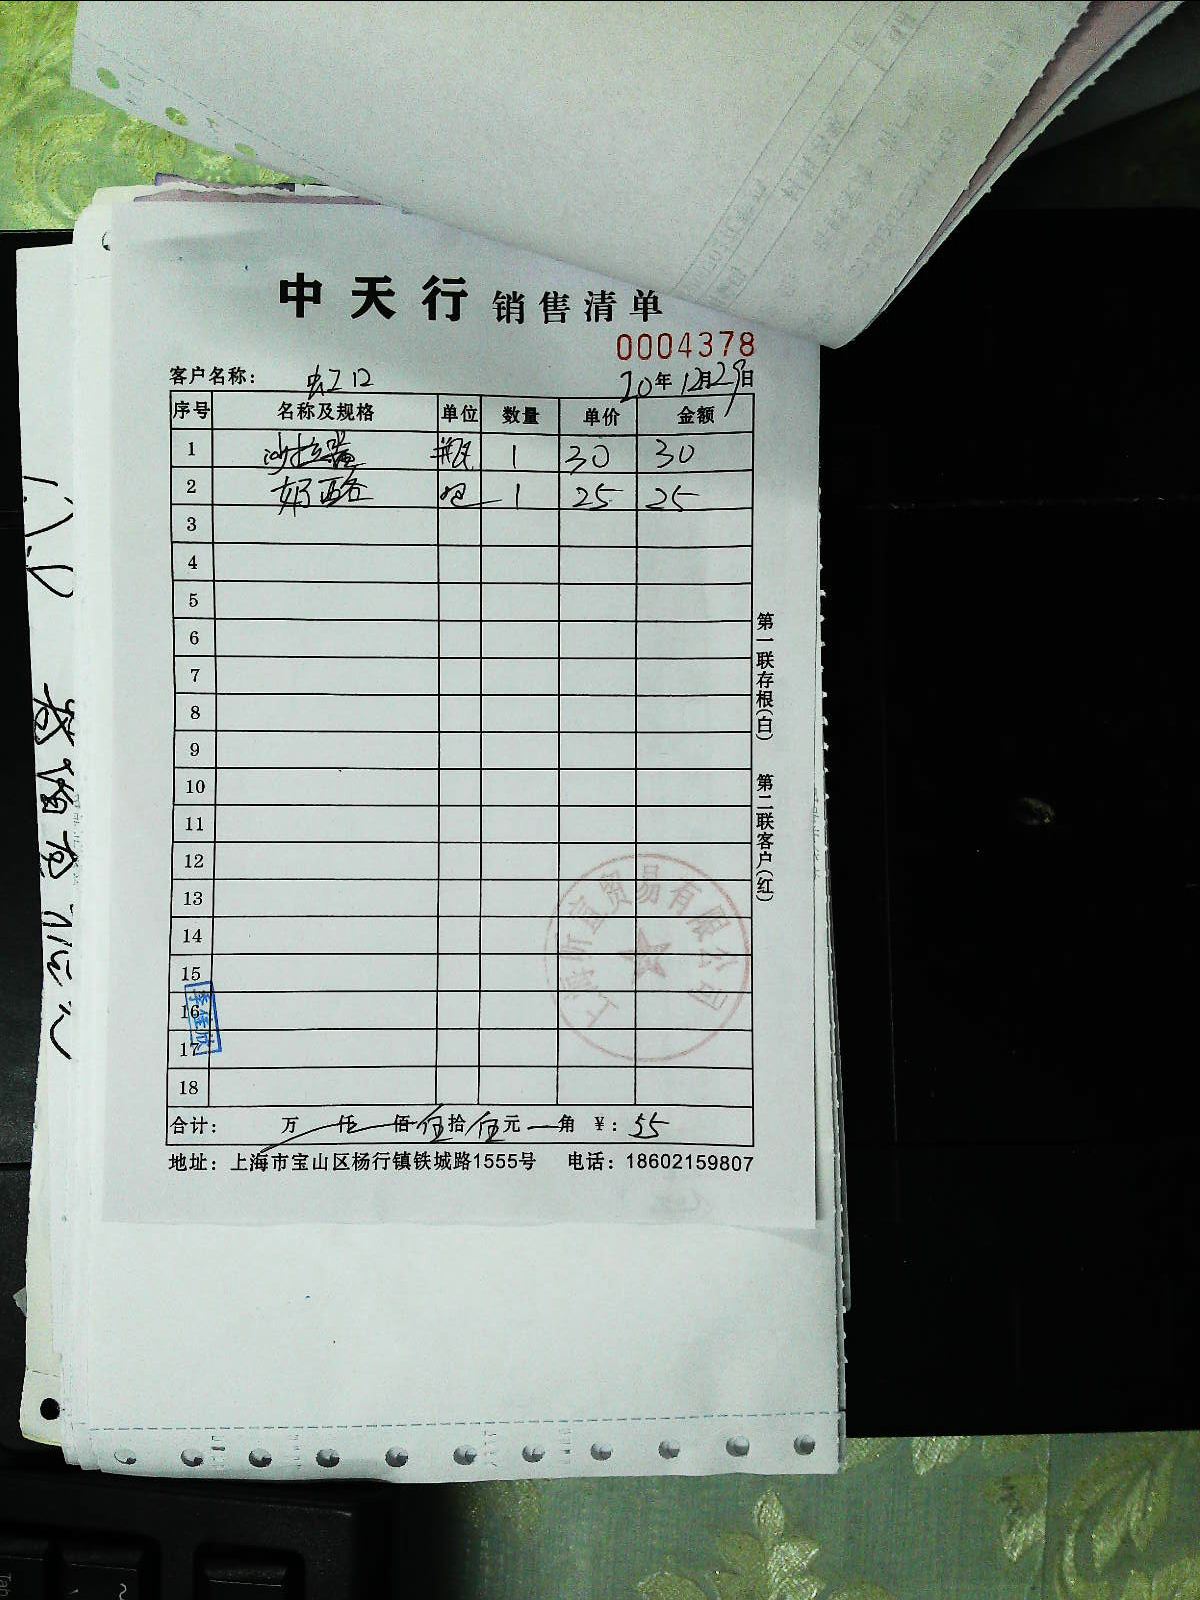 中天行 销售清单
0004378
客户名称： 虹口 20年12月29日
序号 名称及规格 单位 数量 单价 金额
1 沙拉酱 瓶 1 30 30
2 奶酪 包 1 25 25
3
4
5
6
7
8
9
10
11
12
13
14
15
16
17
18
合计： 万 仟 佰 伍拾伍元 角 ¥：55
地址：上海市宝山区杨行镇铁城路1555号 电话：18602159807
第一联存根(白) 第二联客户(红)
贸易有限公司
Tab